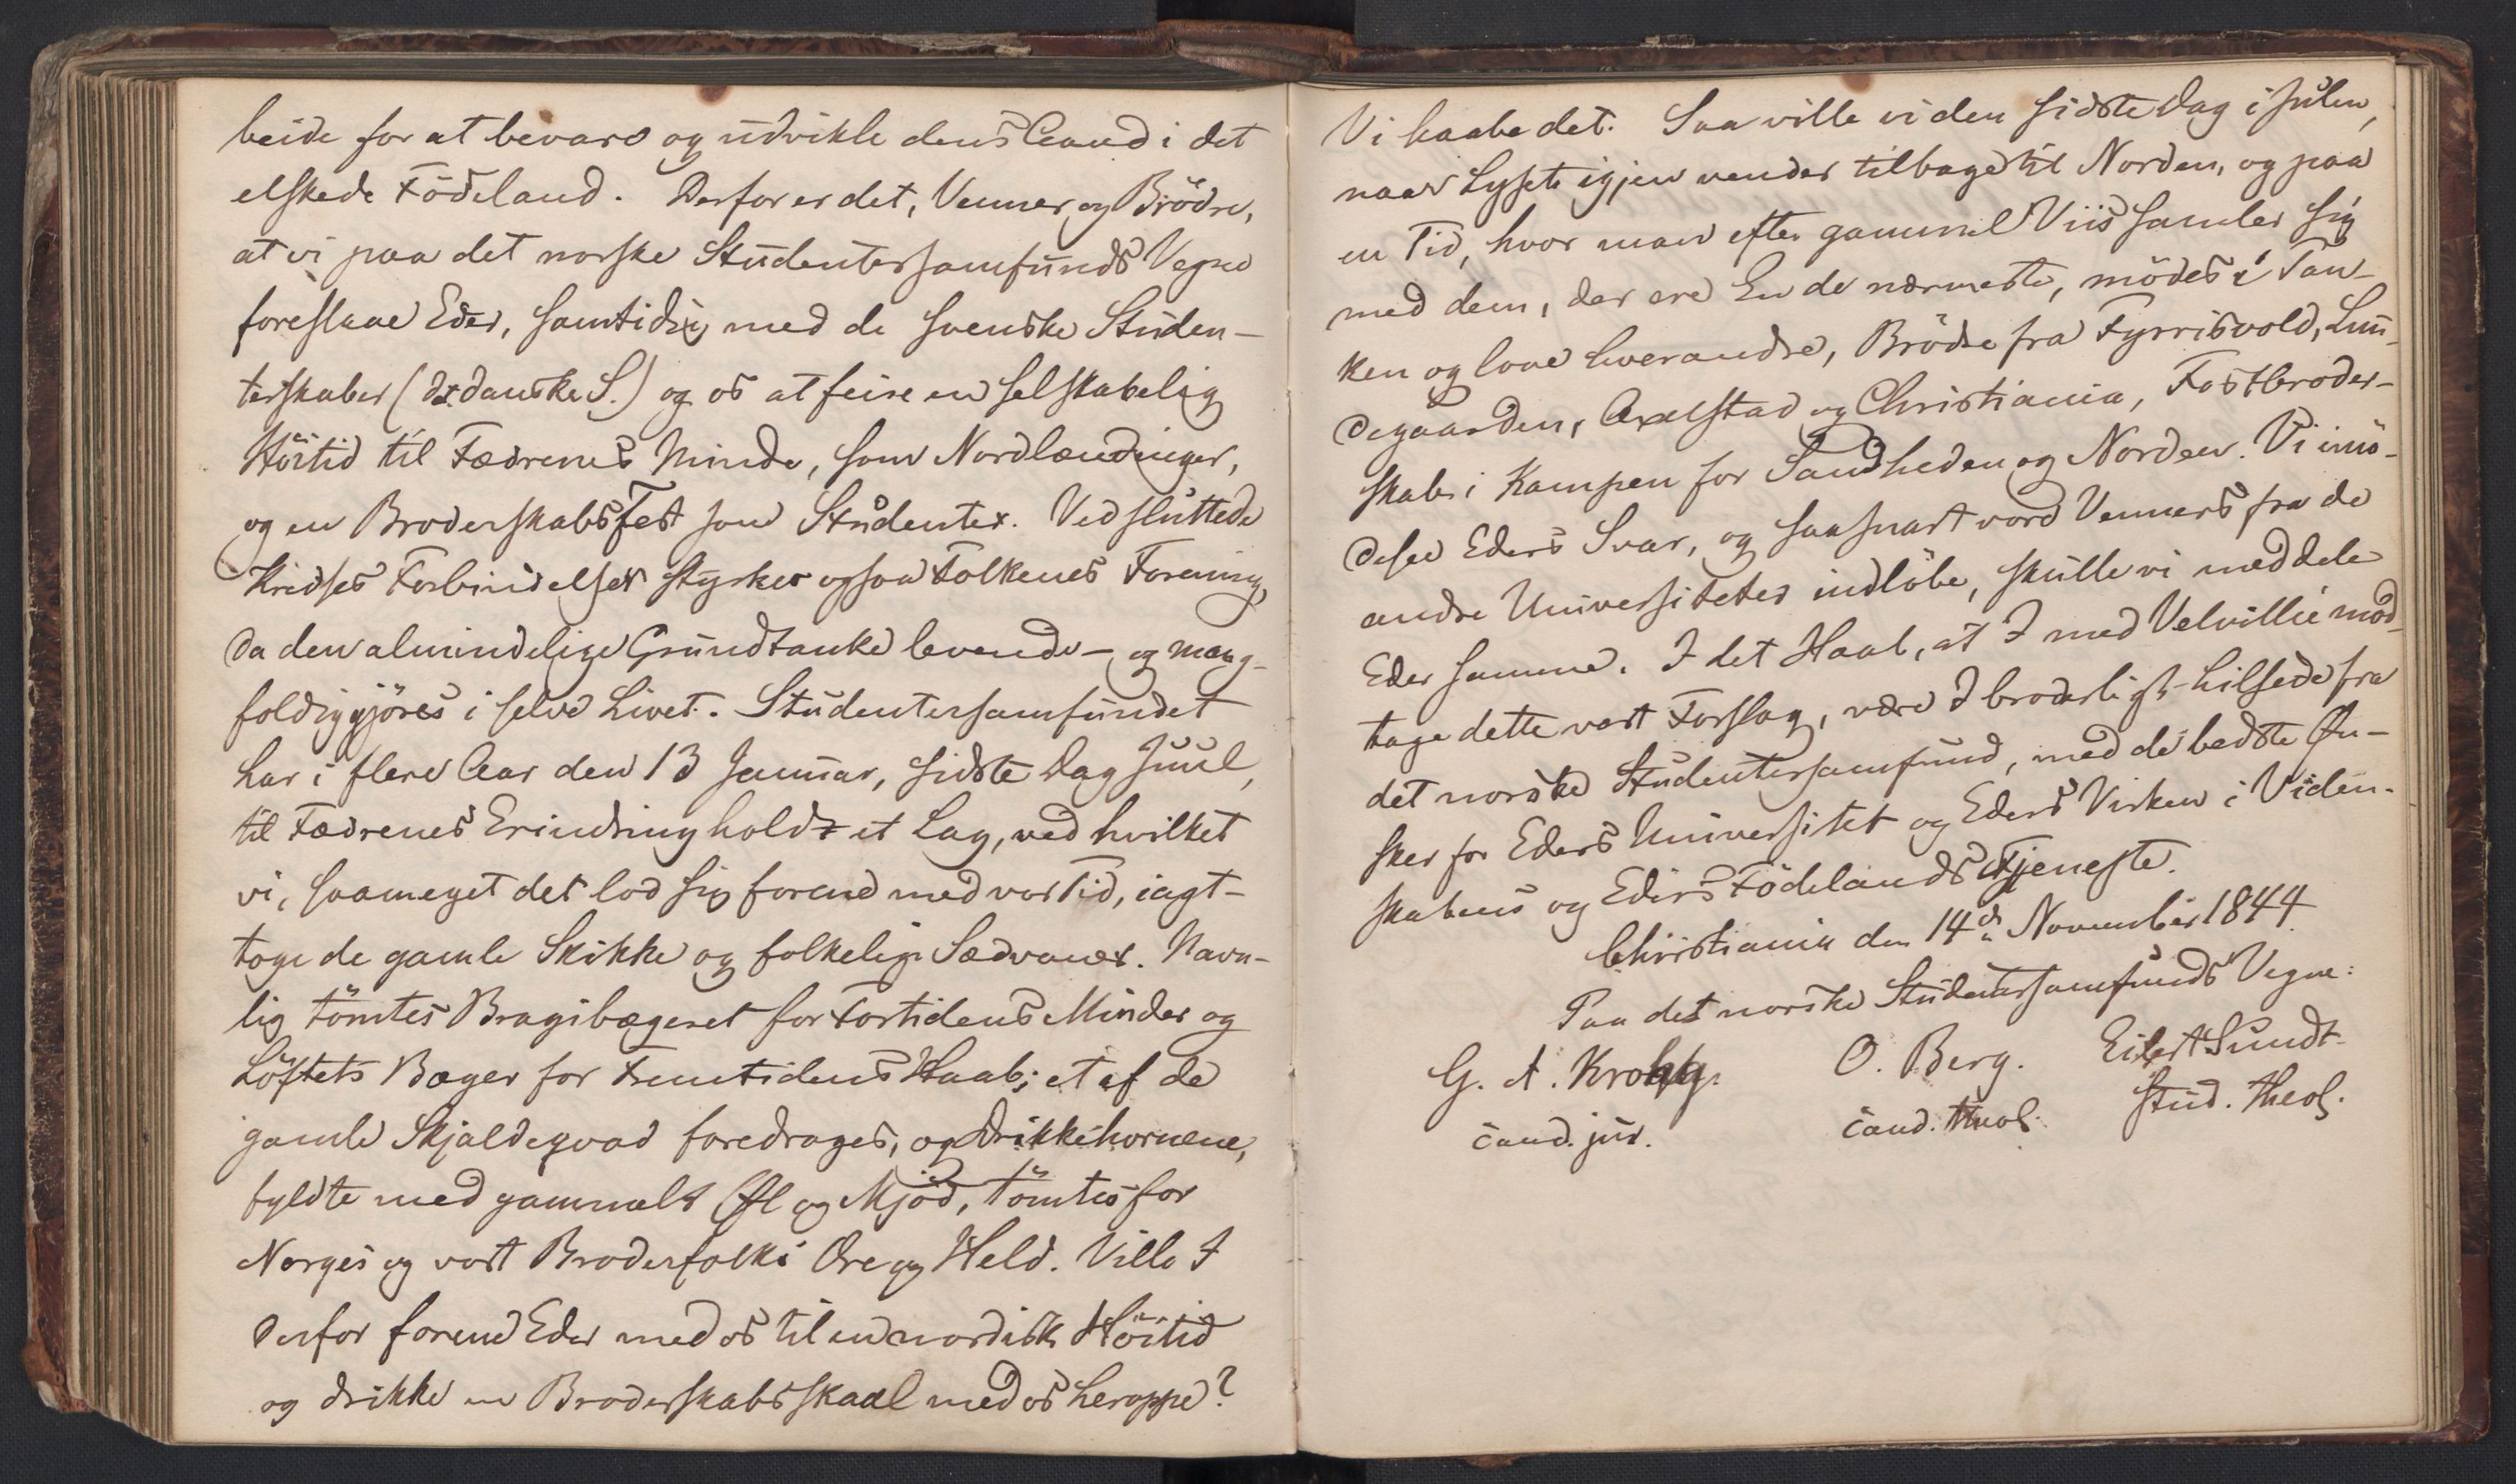 beide for at bevare og udvikle dens Aand i det
elskede Födeland. Derfor er det, Venner og Brödre,
at vi paa det norske Studentersamfunds Vegne
foreslaae Eder, samtidig med de svenske Studen-
terskaber (d. danske S.) og os at feire en selskabelig
Höitid til Fædrenes Minde, som Nordlændinger,
og en Broderskabsfest som Studenter. Ved sluttede
Kredses Forbindelser styrkes ogsaa Folkenes Forening,
da den almindelige Grundtanke levende- og mang-
foldiggjöres i selve Livet. Studentersamfundet
har i flere Aar den 13 Januar, sidste Dag Juul,
til Fædrenes Erindring holdt et Lag, ved hvilket
vi, saameget det lod sig forene med vor Tid, iagt-
toge de gamle Skikke og folkelige Sædvaner. Navn-
lig tömtes Bragibægeret for Fortidens Minder og
Löftets Bæger for Fremtidens Haab; et af de
gamle Skjaldeqvad foredroges, og Drikkehornene,
fyldte med gammelt Øl og Mjöd, tömtes for
Norges og vort Broderfolks Ære og Held. Ville I
derfor forene Eder med os til en nordisk Höitid
og drikke en Broderskabsskaal med os heroppe?
Vi haabe det. Saa ville vi den sidste Dag i Julen,
naar Lyset igjen vender tilbage til Norden, og paa
en Tid, hvor man efter gammel Viis samler sig
med dem, der ere En de nærmeste, mödes i Tan-
ken og love hverandre, Brödre fra Fyrrisvold, Lun-
degaarden, Axelstad og Christiania, Fostbroder-
skab i Kampen for Sandheden og Norden. Vi imö-
desee Eders Svar, og saasnart vore Venners fra de
andre Universiteter indlöbe, skulle vi meddele
Eder samme. I det Haab, at I med Velvillie mod-
tage dette vort Forslag, være I broderligt hilsede fra
det norske Studentersamfund, med de bedste Øn-
sker for Eders Universitet og Eders Virken i Viden-
skabens og Eders Födelands Tjeneste.
Christiania den 14de November 1844.
Paa det norske Studentersamfunds Vegne:
G. A. Krohg. O. Berg. Eilert Sundt
cand. jur. cand. theol. stud. theol.